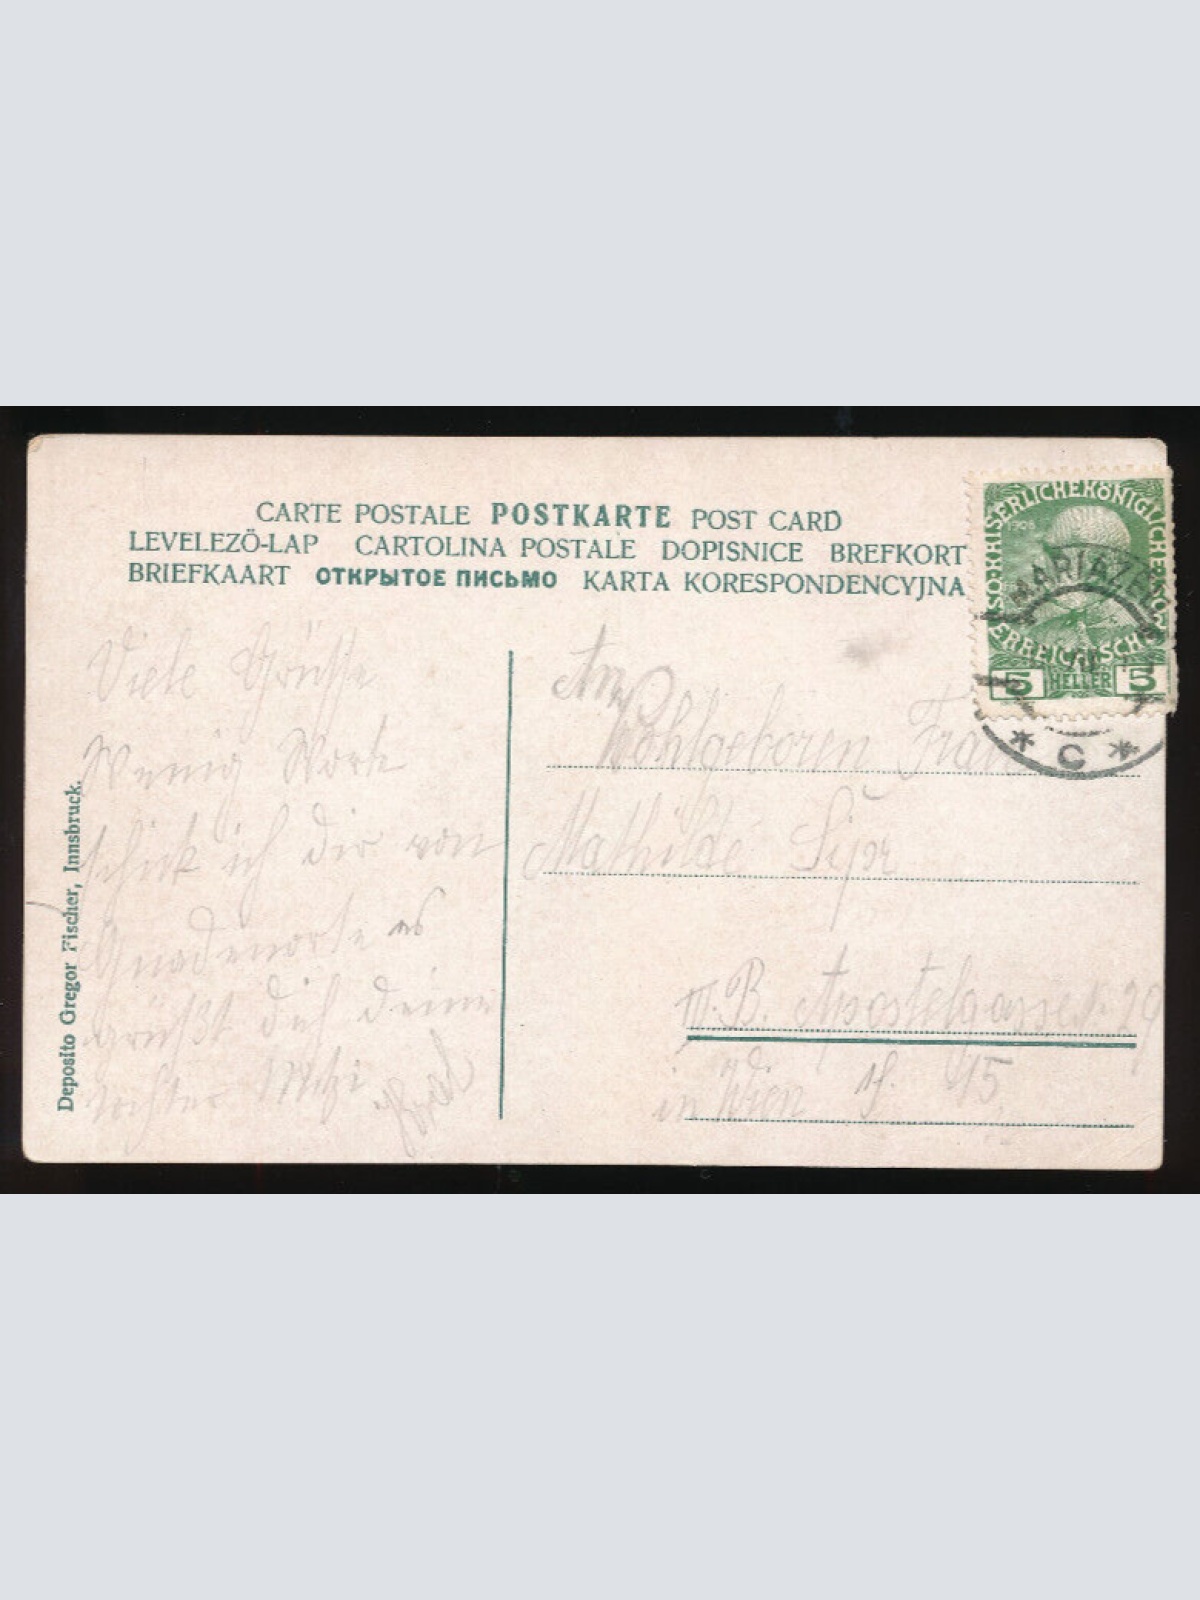 CARTE POSTALE POSTKARTE POST CARD
LEVELEZŐ-LAP CARTOLINA POSTALE DOPISNICE BREFKORT
BRIEFKAART ОТКРЫТОЕ ПИСЬМО KARTA KORESPONDENCYJNA
KAISERLICHE KÖNIGLICHE
ÖSTERREICHISCHE
1908
5 HELLER 5
MARIAZ
* C *
Viele Grüße
Wenig Worte
schick ich dir von
Gnadenorte es
grüßt dich deine
Mizi
An
Wohlgeboren Frau
Mathilde
III. B. Apostelgasse
in Wien 15
Deposito Gregor Fischer, Innsbruck.